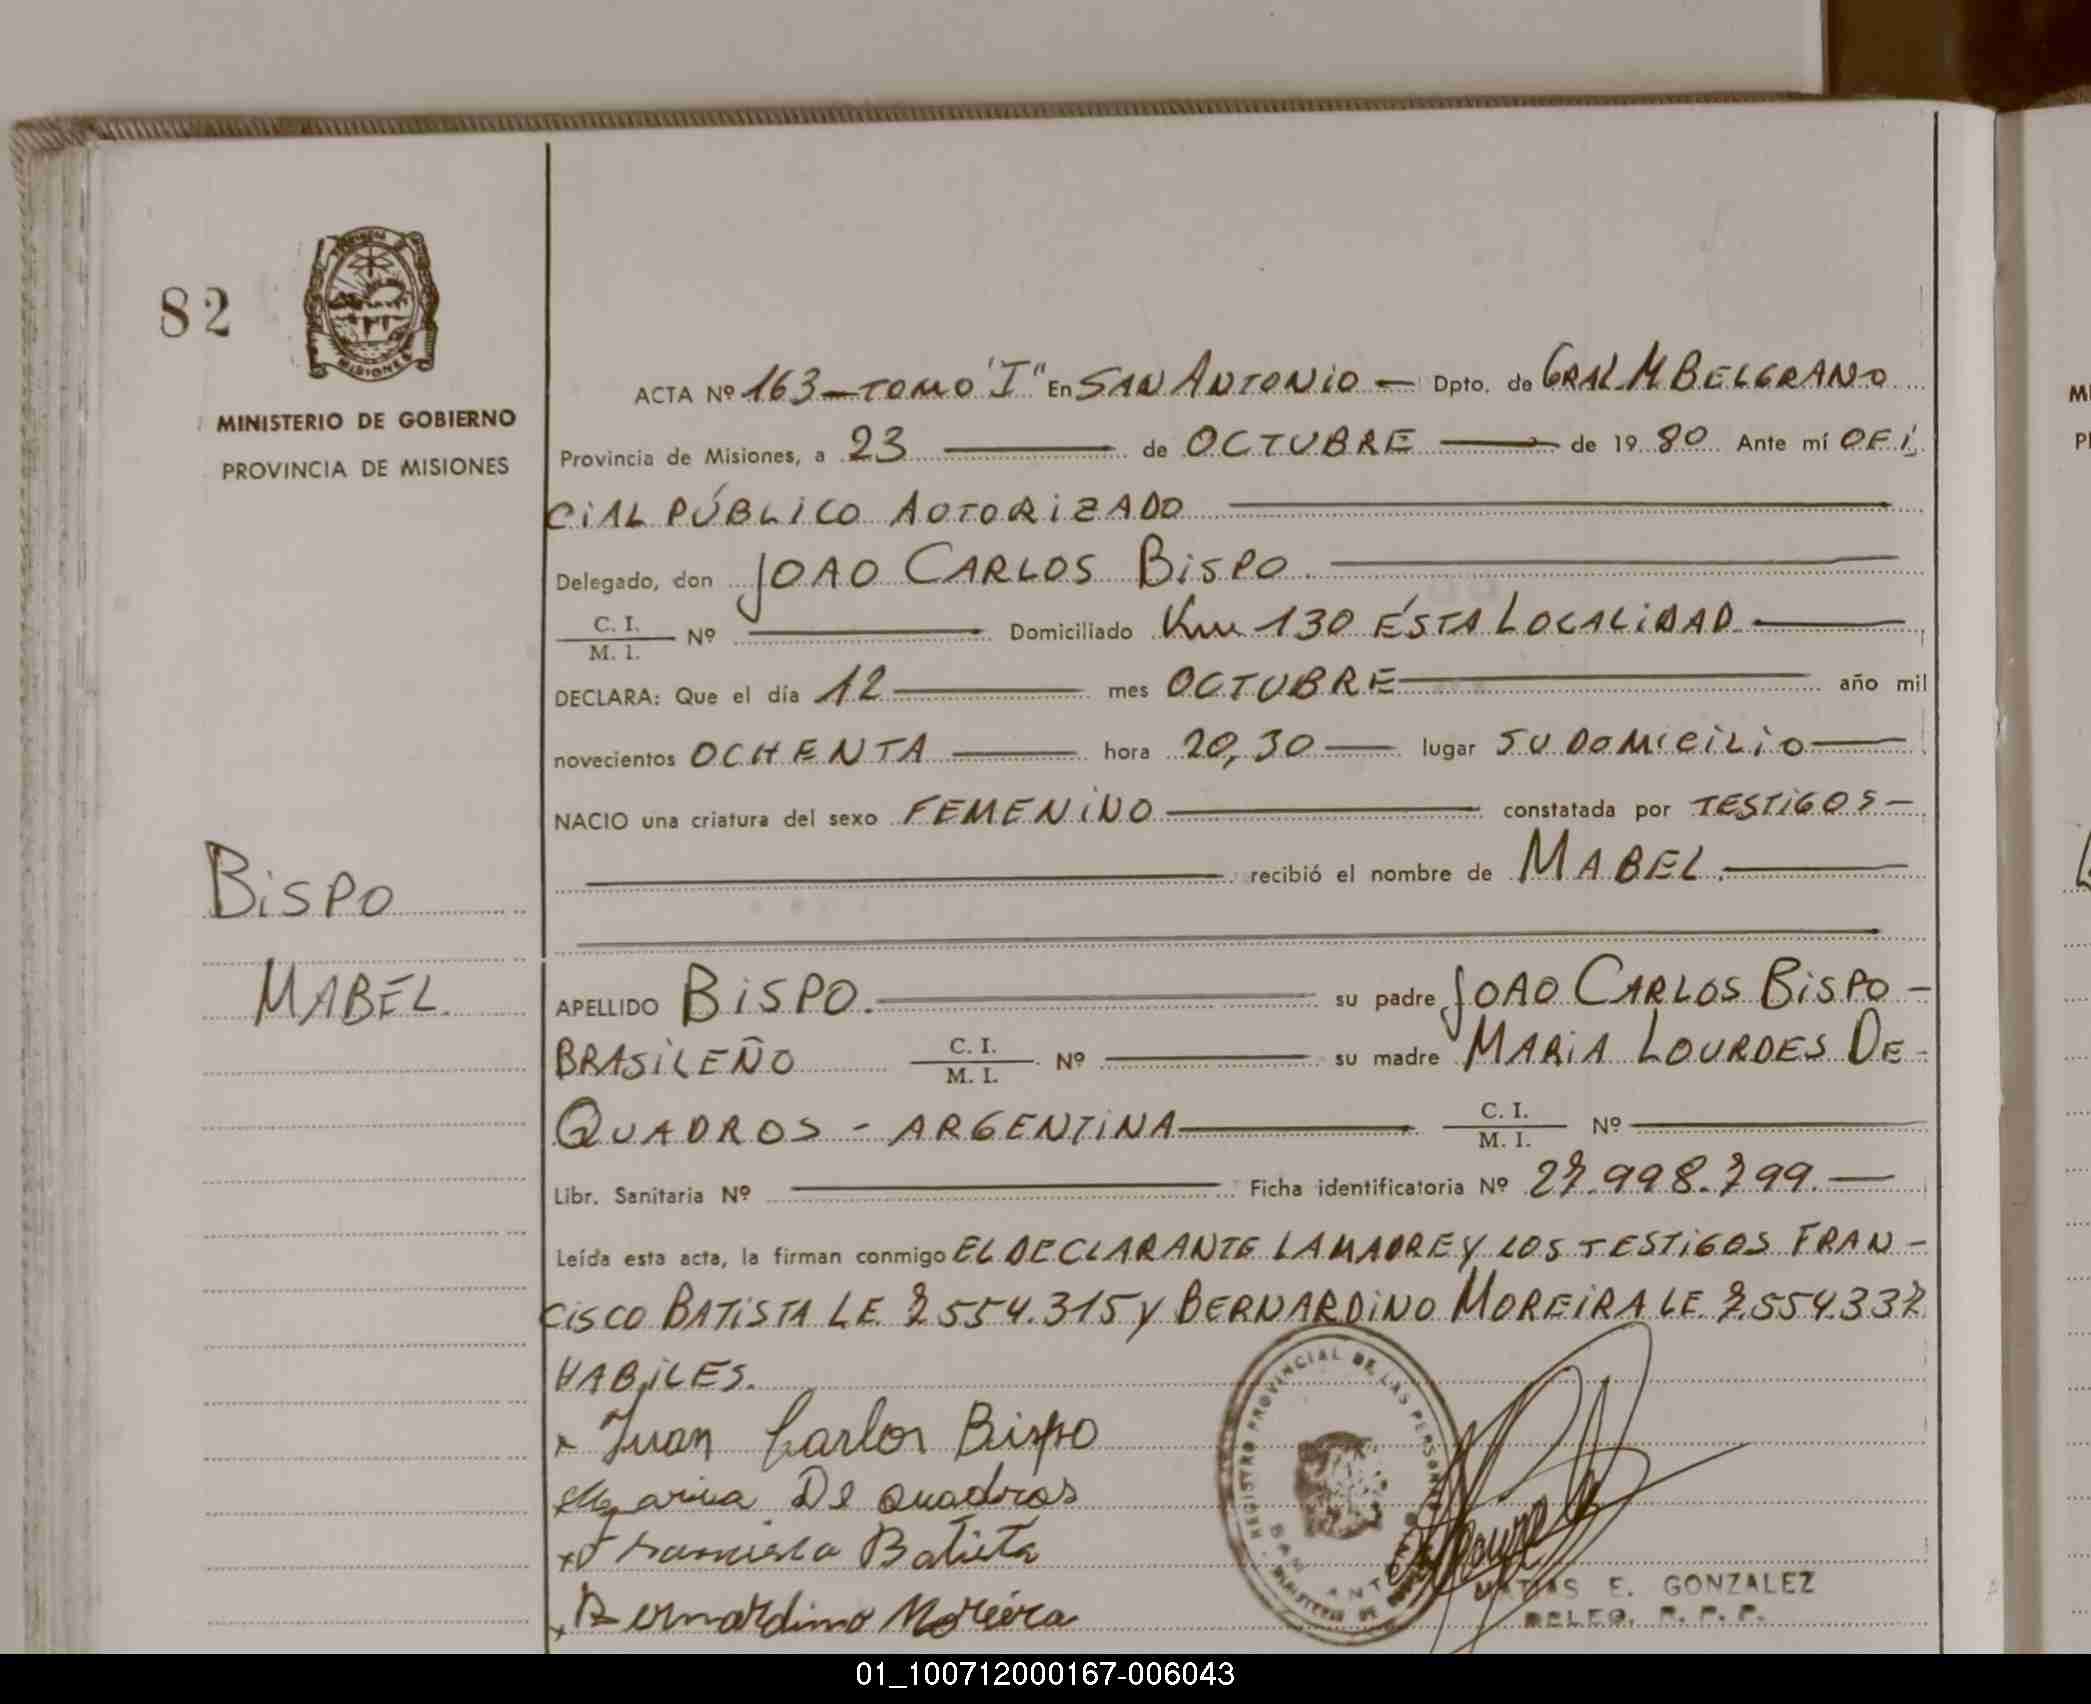 82
MISIONES
MINISTERIO DE GOBIERNO
PROVINCIA DE MISIONES
BISPO
MABEL.
ACTA Nº 163-TOMO "I" En SAN ANTONIO - Dpto. de GRAL M BELGRANO
Provincia de Misiones, a 23 de OCTUBRE de 1980 Ante mí OFI
CIAL PÚBLICO AUTORIZADO
Delegado, don JOAO CARLOS BISPO.
C. I.
M. I. Nº Domiciliado Km 130 ÉSTA LOCALIDAD
DECLARA: Que el día 12 mes OCTUBRE año mil
novecientos OCHENTA hora 20,30 lugar SU DOMICILIO
NACIO una criatura del sexo FEMENINO constatada por TESTIGOS-
recibió el nombre de MABEL.
APELLIDO BISPO. su padre JOAO CARLOS BISPO -
BRASILEÑO C. I. M. I. Nº su madre MARIA LOURDES DE -
QUADROS - ARGENTINA C. I. M. I. Nº
Libr. Sanitaria Nº Ficha identificatoria Nº 27.998.799.
Leída esta acta, la firman conmigo EL DECLARANTE LA MADRE Y LOS TESTIGOS FRAN-
CISCO BATISTA LE. 7.554.315 Y BERNARDINO MOREIRA LE. 7.554.337
HABILES.
x Juan Carlos Bispo
Maria De Quadros
x Francisco Batista
x Bernardino Moreira
REGISTRO PROVINCIAL DE LAS PERSONAS
MATIAS E. GONZALEZ
DELEG. R. P. P.
01_100712000167-006043